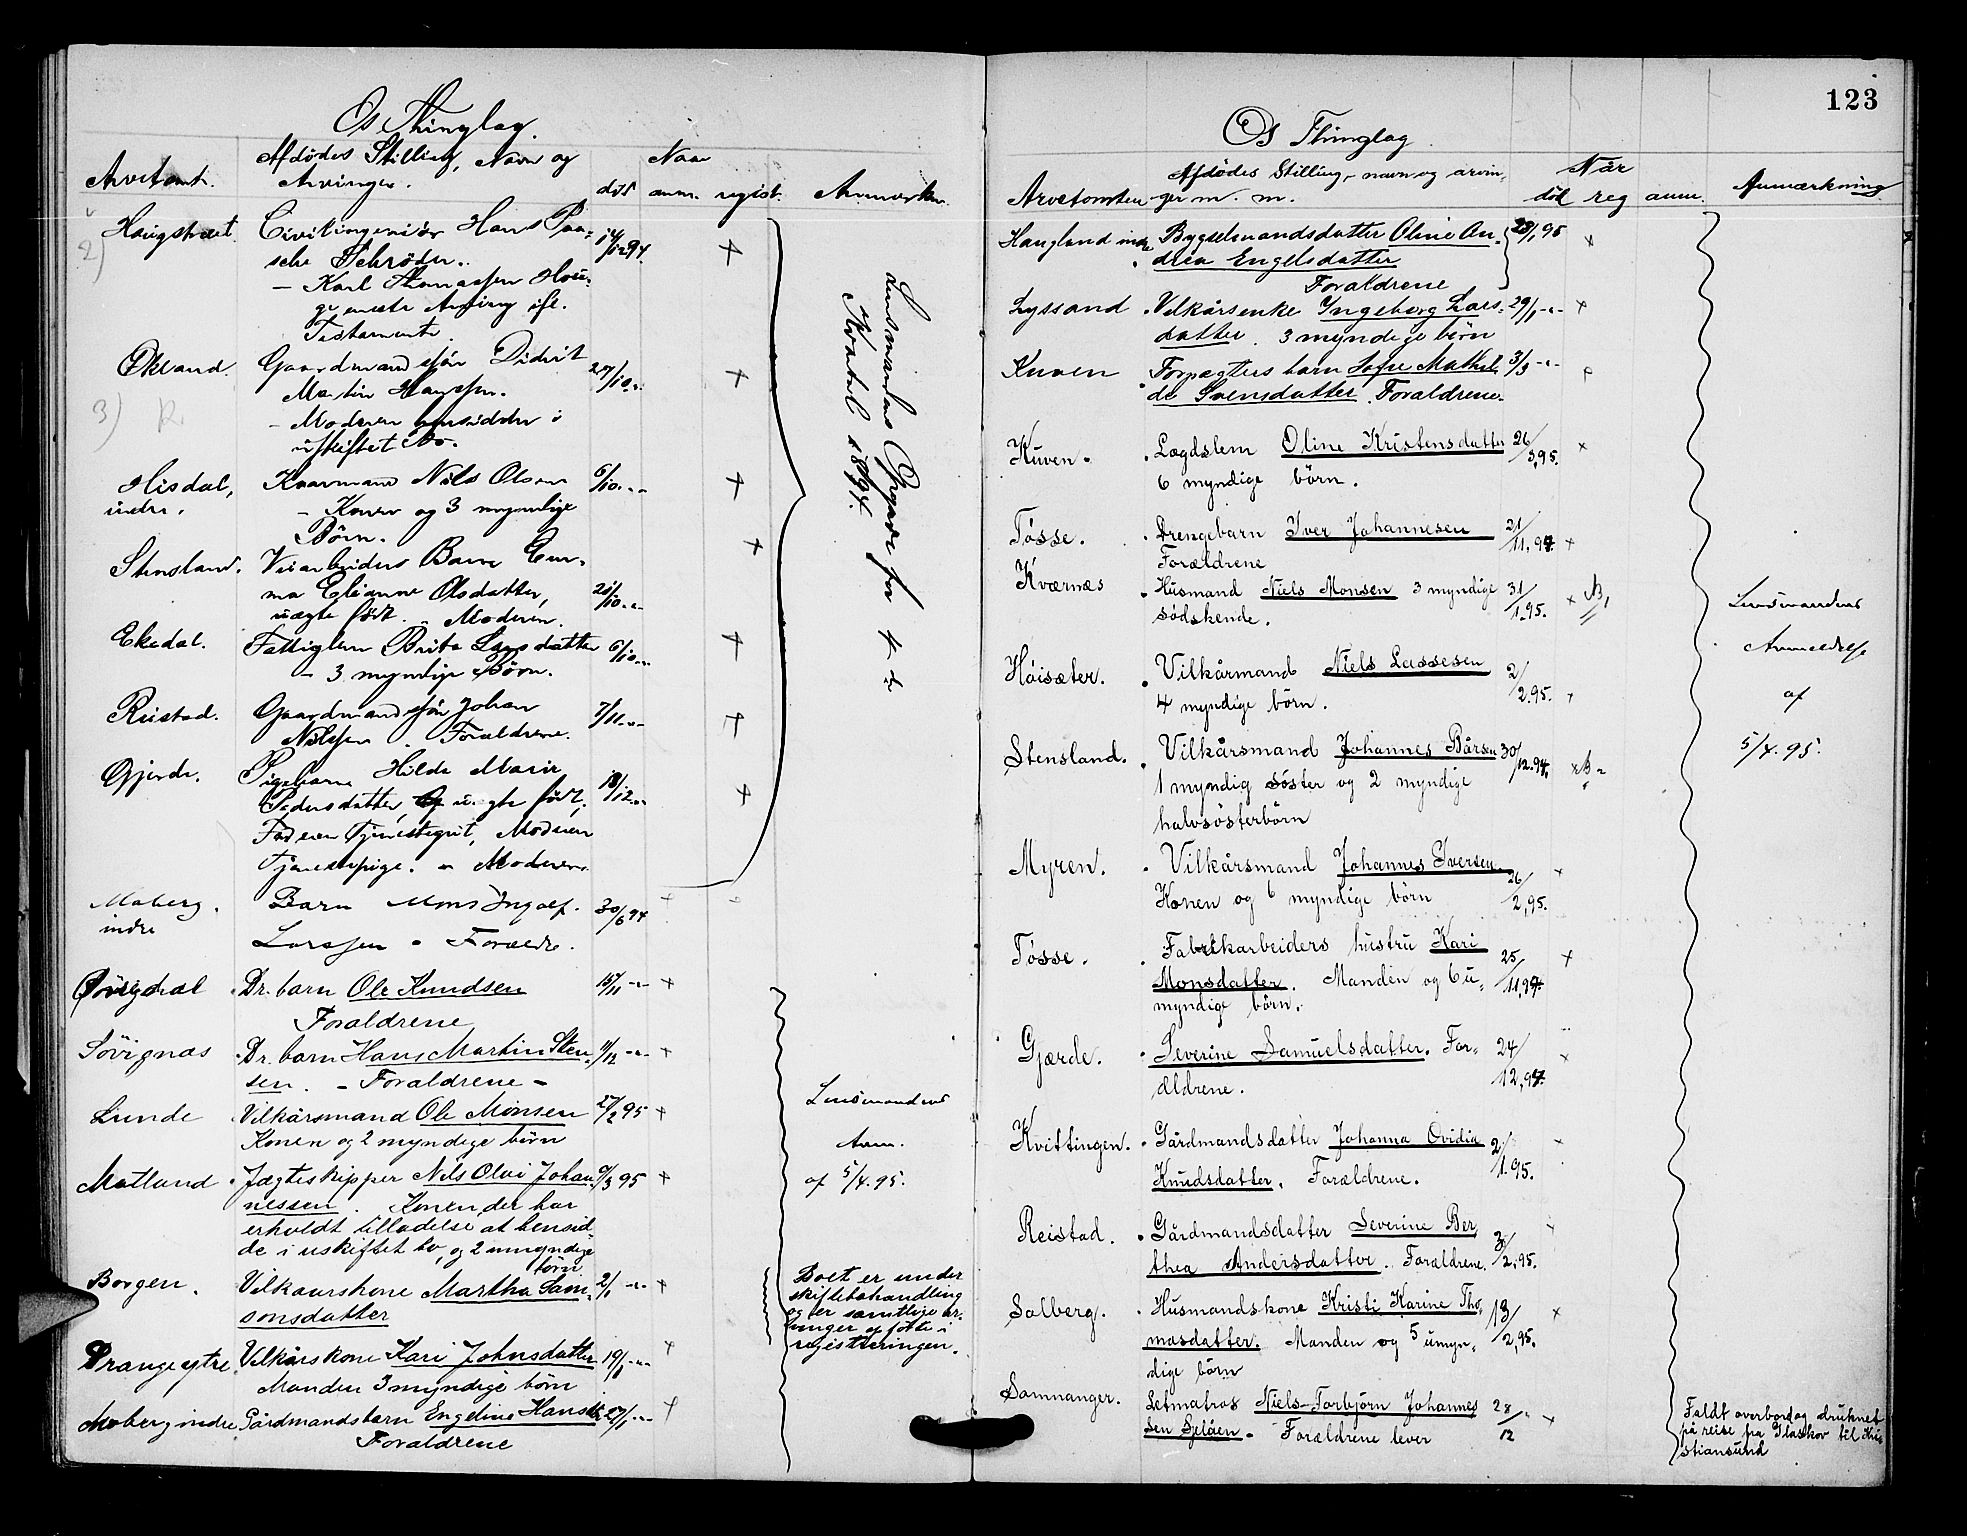 Os Thinglag.
Arvetomt.
Afdødes Stilling, Navn og
Arvinger.
Naar
død
anm.
regist.
Anmærkn.
2)
Civilingeniør Hans Paa-
sche Schrøder.
14/12 94.
– Karl Thomassen Hou-
ge eneste Arving ifl.
Testamente.
Økland.
Gaardmandssøn Didrik
Martin Hanssen.
27/10 "
3) R.
– Moderen hensidder i
uskiftet Bo.
Hisdal,
indre.
Kaarmand Nils Olsen
6/10 "
– Konen og 3 myndige
Børn.
Stensland.
Veiarbeiders Barn Em-
ma Elianne Olsdatter,
uægte født. – Moderen.
Ekedal.
Fattiglem Brita Larsdatter
6/10 "
– 3 myndige Børn.
Reistad.
Gaardmandssøn Johan
Nilssen. Forældrene.
7/11 "
Gjerde.
Pigebarn Hilda Marie
Pedersdatter, uægte født.
18/12 "
Faderen Tjenestegut, Moderen
Tjenestepige. – Moderen.
Moberg
indre
Barn Mons Ingolf
30/6 94
Larssen – Forældre.
Lensmandens Opgave for 4de
Kvartal 1894.
Søvigdal
Dr. barn Ole Knudsen
15/11 "
Forældrene
Søvignæs
Dr. barn Hans Martin Sten-
sen. – Forældrene –
Lunde
Vilkårsmand Ole Monsen
27/2 95
Konen og 2 myndige børn
Lensmandens
Anm.
af 5/4.95.
Matland
Jægteskipper Nils Olai Johan-
nessen. Konen, der har
9/3 95
erholdt tilladelse at hensid-
de i uskiftet bo, og 2 umyndige
børn
Borgen.
Vilkaarskone Martha Sam-
sonsdatter
2/1 "
Boet er under
skiftebehandling
og er samtlige ar-
vinger opførte i
registreringen.
Drange ytre.
Vilkårskone Kari Johnsdatter
19/1 "
Manden 3 myndige børn
Moberg indre
Gårdmandsbarn Engeline Hansdtr
27/1 "
Forældrene
123
Os Thinglag.
Arvetomten
Afdødes Stilling, navn og arvin-
ger m. m.
Når
død
reg
anm.
Anmærkning.
Haugland indre
Bygselmandsdatter Oline An-
drea Engelsdatter
28/1 95
Forældrene
Lyssand
Vilkårsenke Ingeborg Lars-
datter. 3 myndige børn
29/1 "
Kuven
Forpagters barn Sofie Mathil-
de Svensdatter. Forældrene.
3/3 "
Kuven.
Lægdslem Oline Kristensdatter
26/3,95.
6 myndige børn.
Tøsse.
Drengebarn Iver Johannesen
21/11,94.
Forældrene
Kværnæs
Husmand Niels Monsen 3 myndige
sødskende.
31/1.95.
Lensmandens
Anmeldelse
af
5/4.95.
Høisæter.
Vilkårmand Niels Lassesen
2/2.95.
4 myndige børn.
Stensland.
Vilkårsmand Johannes Bårsen
30/12.94.
1 myndig søster og 2 myndige
halvsøsterbørn
Myren.
Vilkårsmand Johannes Iversen
26/2,95.
Konen og 6 myndige børn
Tøsse.
Fabrikarbeiders hustru Kari
Monsdatter. Manden og 6 u-
25/11,94.
myndige børn.
Gjærde.
Severine Samuelsdatter. For-
ældrene.
24/12,94.
Kvittingen.
Gårdmandsdatter Johanna Ovidia
Knudsdatter. Forældrene.
2/1.95.
Reistad.
Gårdmandsdatter Severine Ber-
thea Andersdatter. Forældrene.
3/2,95.
Solberg.
Husmandskone Kristi Karine Tho-
masdatter. Manden og 5 umyn-
13/2,95.
dige børn
Samnanger.
Letmatros Niels Torbjørn Johannes-
sen Gjelåen. Forældrene lever
28/12 "
Faldt overbord og druknet
på reise fra Flaskov til Kri-
stiansund